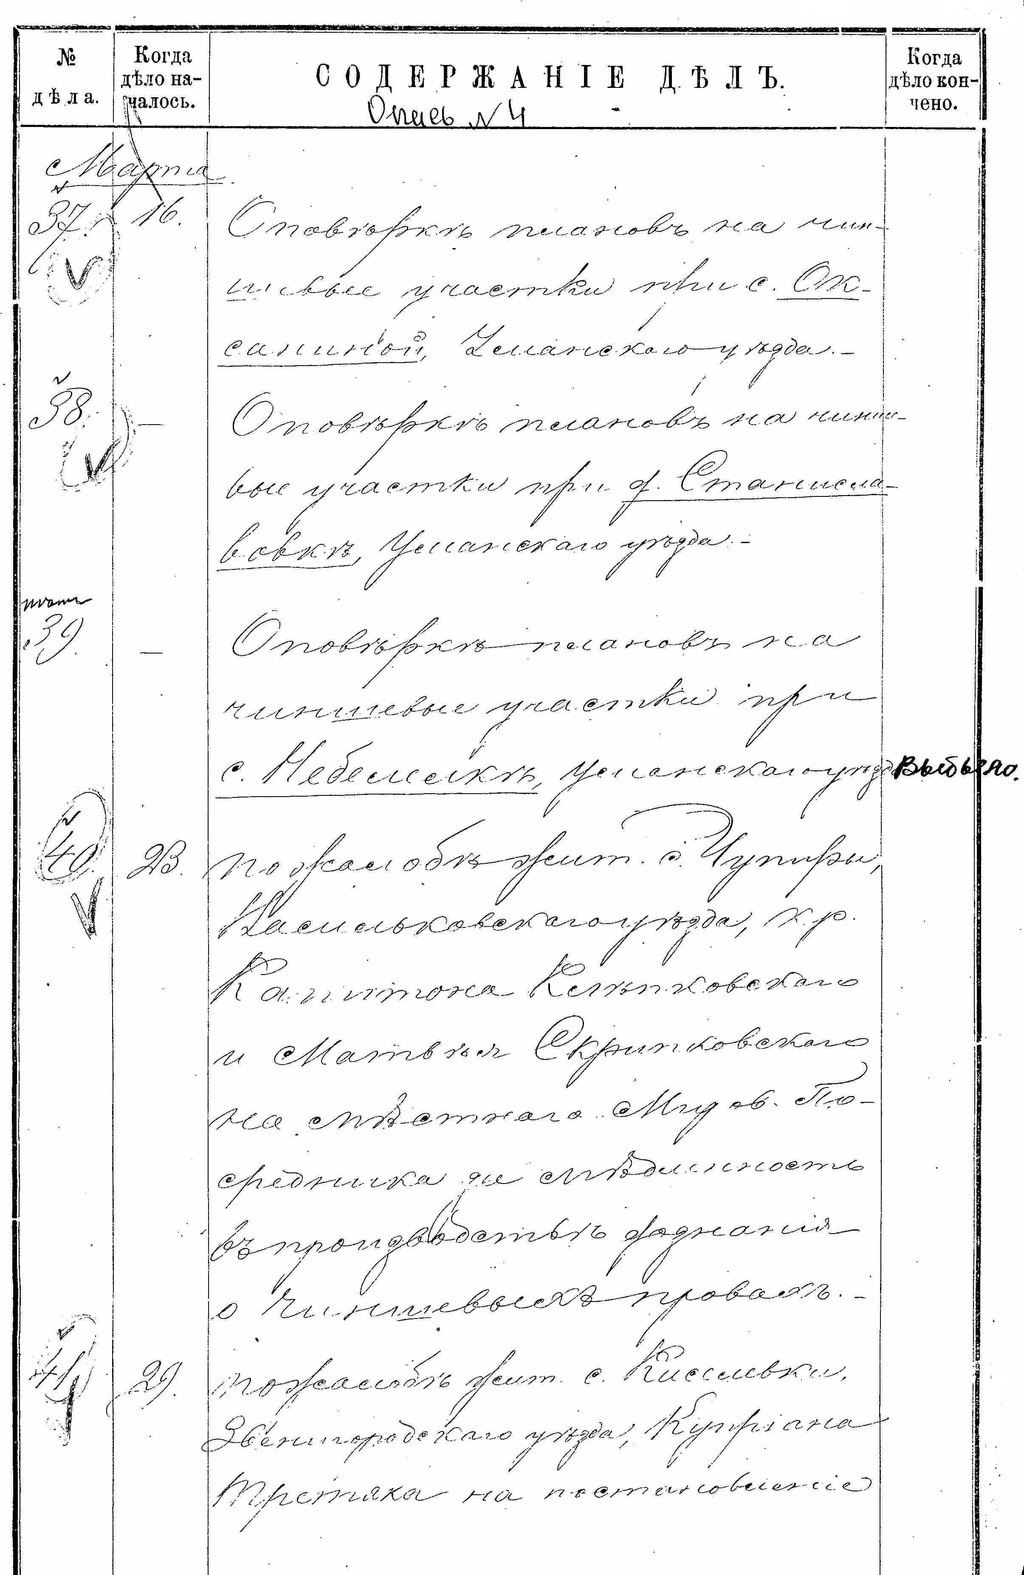 № дѣла.
Когда дѣло началось.
СОДЕРЖАНІЕ ДѢЛЪ.
Когда дѣло кончено.
Опись №4
Марта
37. 16. О повѣркѣ плановъ на чин-
шевые участки при с. Ок-
саниной, Уманскаго уѣзда.—
38. — О повѣркѣ плановъ на чинше-
вые участки при д. Станисла-
вовкѣ, Уманскаго уѣзда.—
39. — О повѣркѣ плановъ на
чиншевые участки при
с. Небелевкѣ, Уманскаго уѣзд. Выбыло.
40. 23. По жалобѣ жит. с. Чупиры,
Васильковскаго уѣзда, кр.
Капитона Клѣпковскаго
и Матвѣя Скрипковскаго
на мѣстнаго Миров. По-
средника за мѣдлинность
въ производствѣ дознанія
о чиншевыхъ правахъ.—
41. 29. По жалобѣ жит. с. Киселевки,
Звенигородскаго уѣзда, Купріана
Третяка на постановленіе